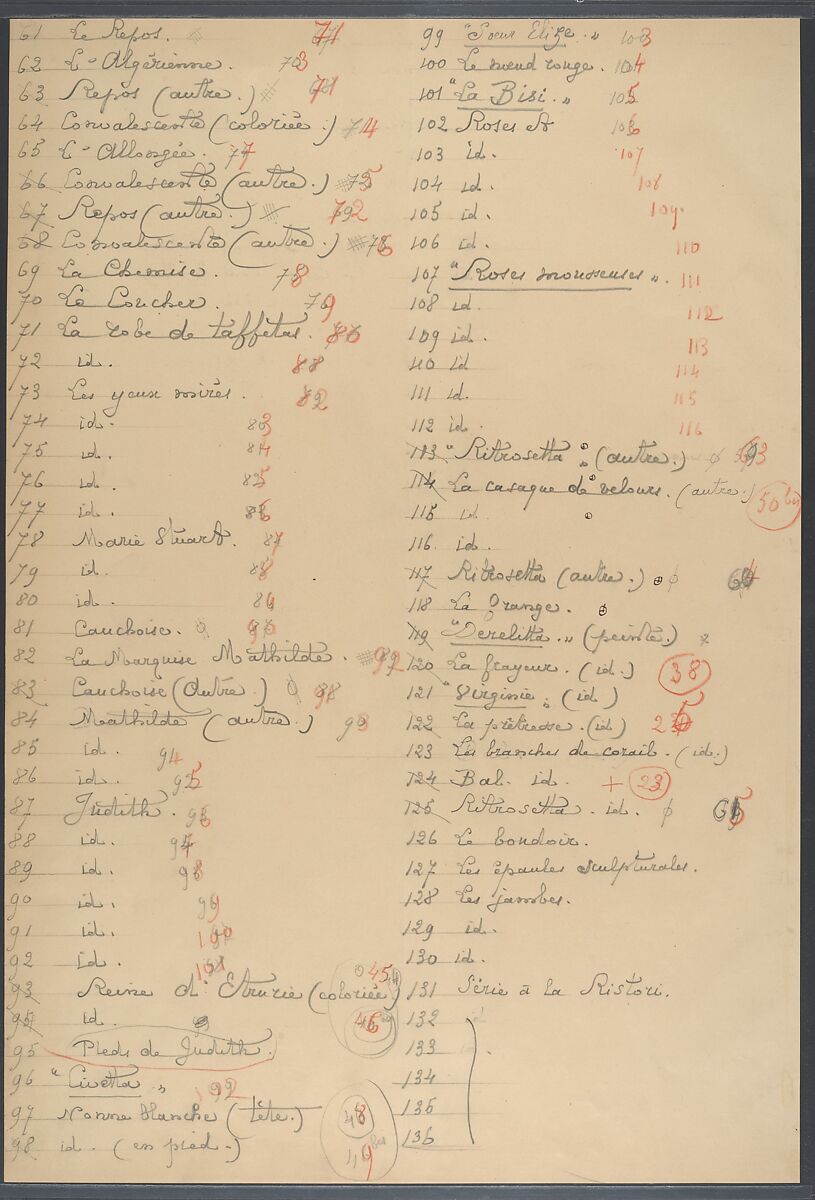 61 Le Repos. 71
62 L'Algérienne. 73
63 Repos (autre.) 71
64 Convalescente (coloriée.) 74
65 L'Allongée. 77
66 Convalescente (autre.) 75
67 Repos (autre.) 72
68 Convalescente (autre.) 76
69 La Chemise. 78
70 Le Coucher. 79
71 La robe de taffetas. 80
72 id. 88
73 Les yeux mirés. 82
74 id. 83
75 id. 84
76 id. 85
77 id. 86
78 Marie Stuart. 87
79 id. 88
80 id. 89
81 Cauchoise. 90
82 La Marquise Mathilde. 92
83 Cauchoise (autre.) 98
84 Mathilde (autre.) 93
85 id. 94
86 id. 95
87 Judith. 96
88 id. 97
89 id. 98
90 id. 99
91 id. 100
92 id. 101
93 Reine d'Etrurie (coloriée) 45
95 id. 46
95 Pieds de Judith.
96 "Civetta" 102
97 Nonne blanche (tête.) 48
98 id. (en pied.) 49 bis
99 "Soeur Elize." 103
100 Le noeud rouge. 104
101 "La Bisi." 105
102 Roses A 106
103 id. 107
104 id. 108
105 id. 109.
106 id. 110
107 "Roses mousseuses". 111
108 id. 112
109 id. 113
110 id 114
111 id. 115
112 id. 116
113 "Ritrosetta" (autre.) ϕ 63
114 La casaque de velours. (autre.) 50 bis
115 id.
116 id.
117 Ritrosetta (autre.) ϕ 64
118 La frange.
119 "Derelitta." (peinte.)
120 La frayeur. (id.) 38
121 "Virginie". (id)
122 La prêtresse. (id) 25
123 Les branches de corail. (id.)
124 Bal. id. + 23
125 Ritrosetta. id. ϕ 65
126 Le boudoir.
127 Les épaules sculpturales.
128 Les jambes.
129 id.
130 id.
131 Série à la Ristori.
132 id
133 id.
134
135
136